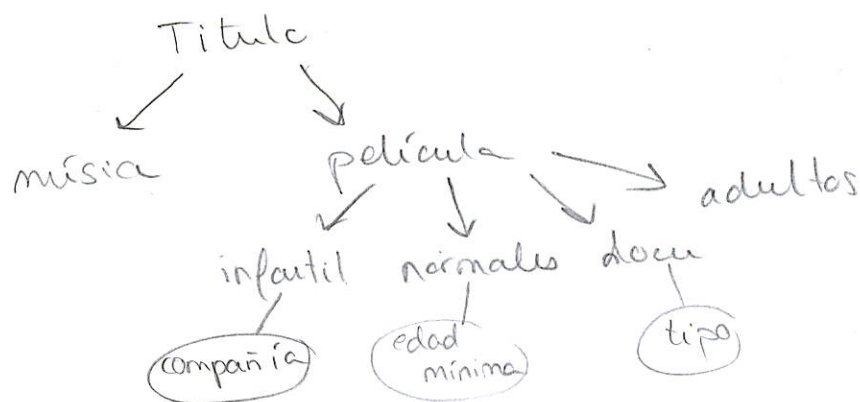 Titulo
música
película
adultos
infantil
normales
docu
compañía
edad
mínima
tipo